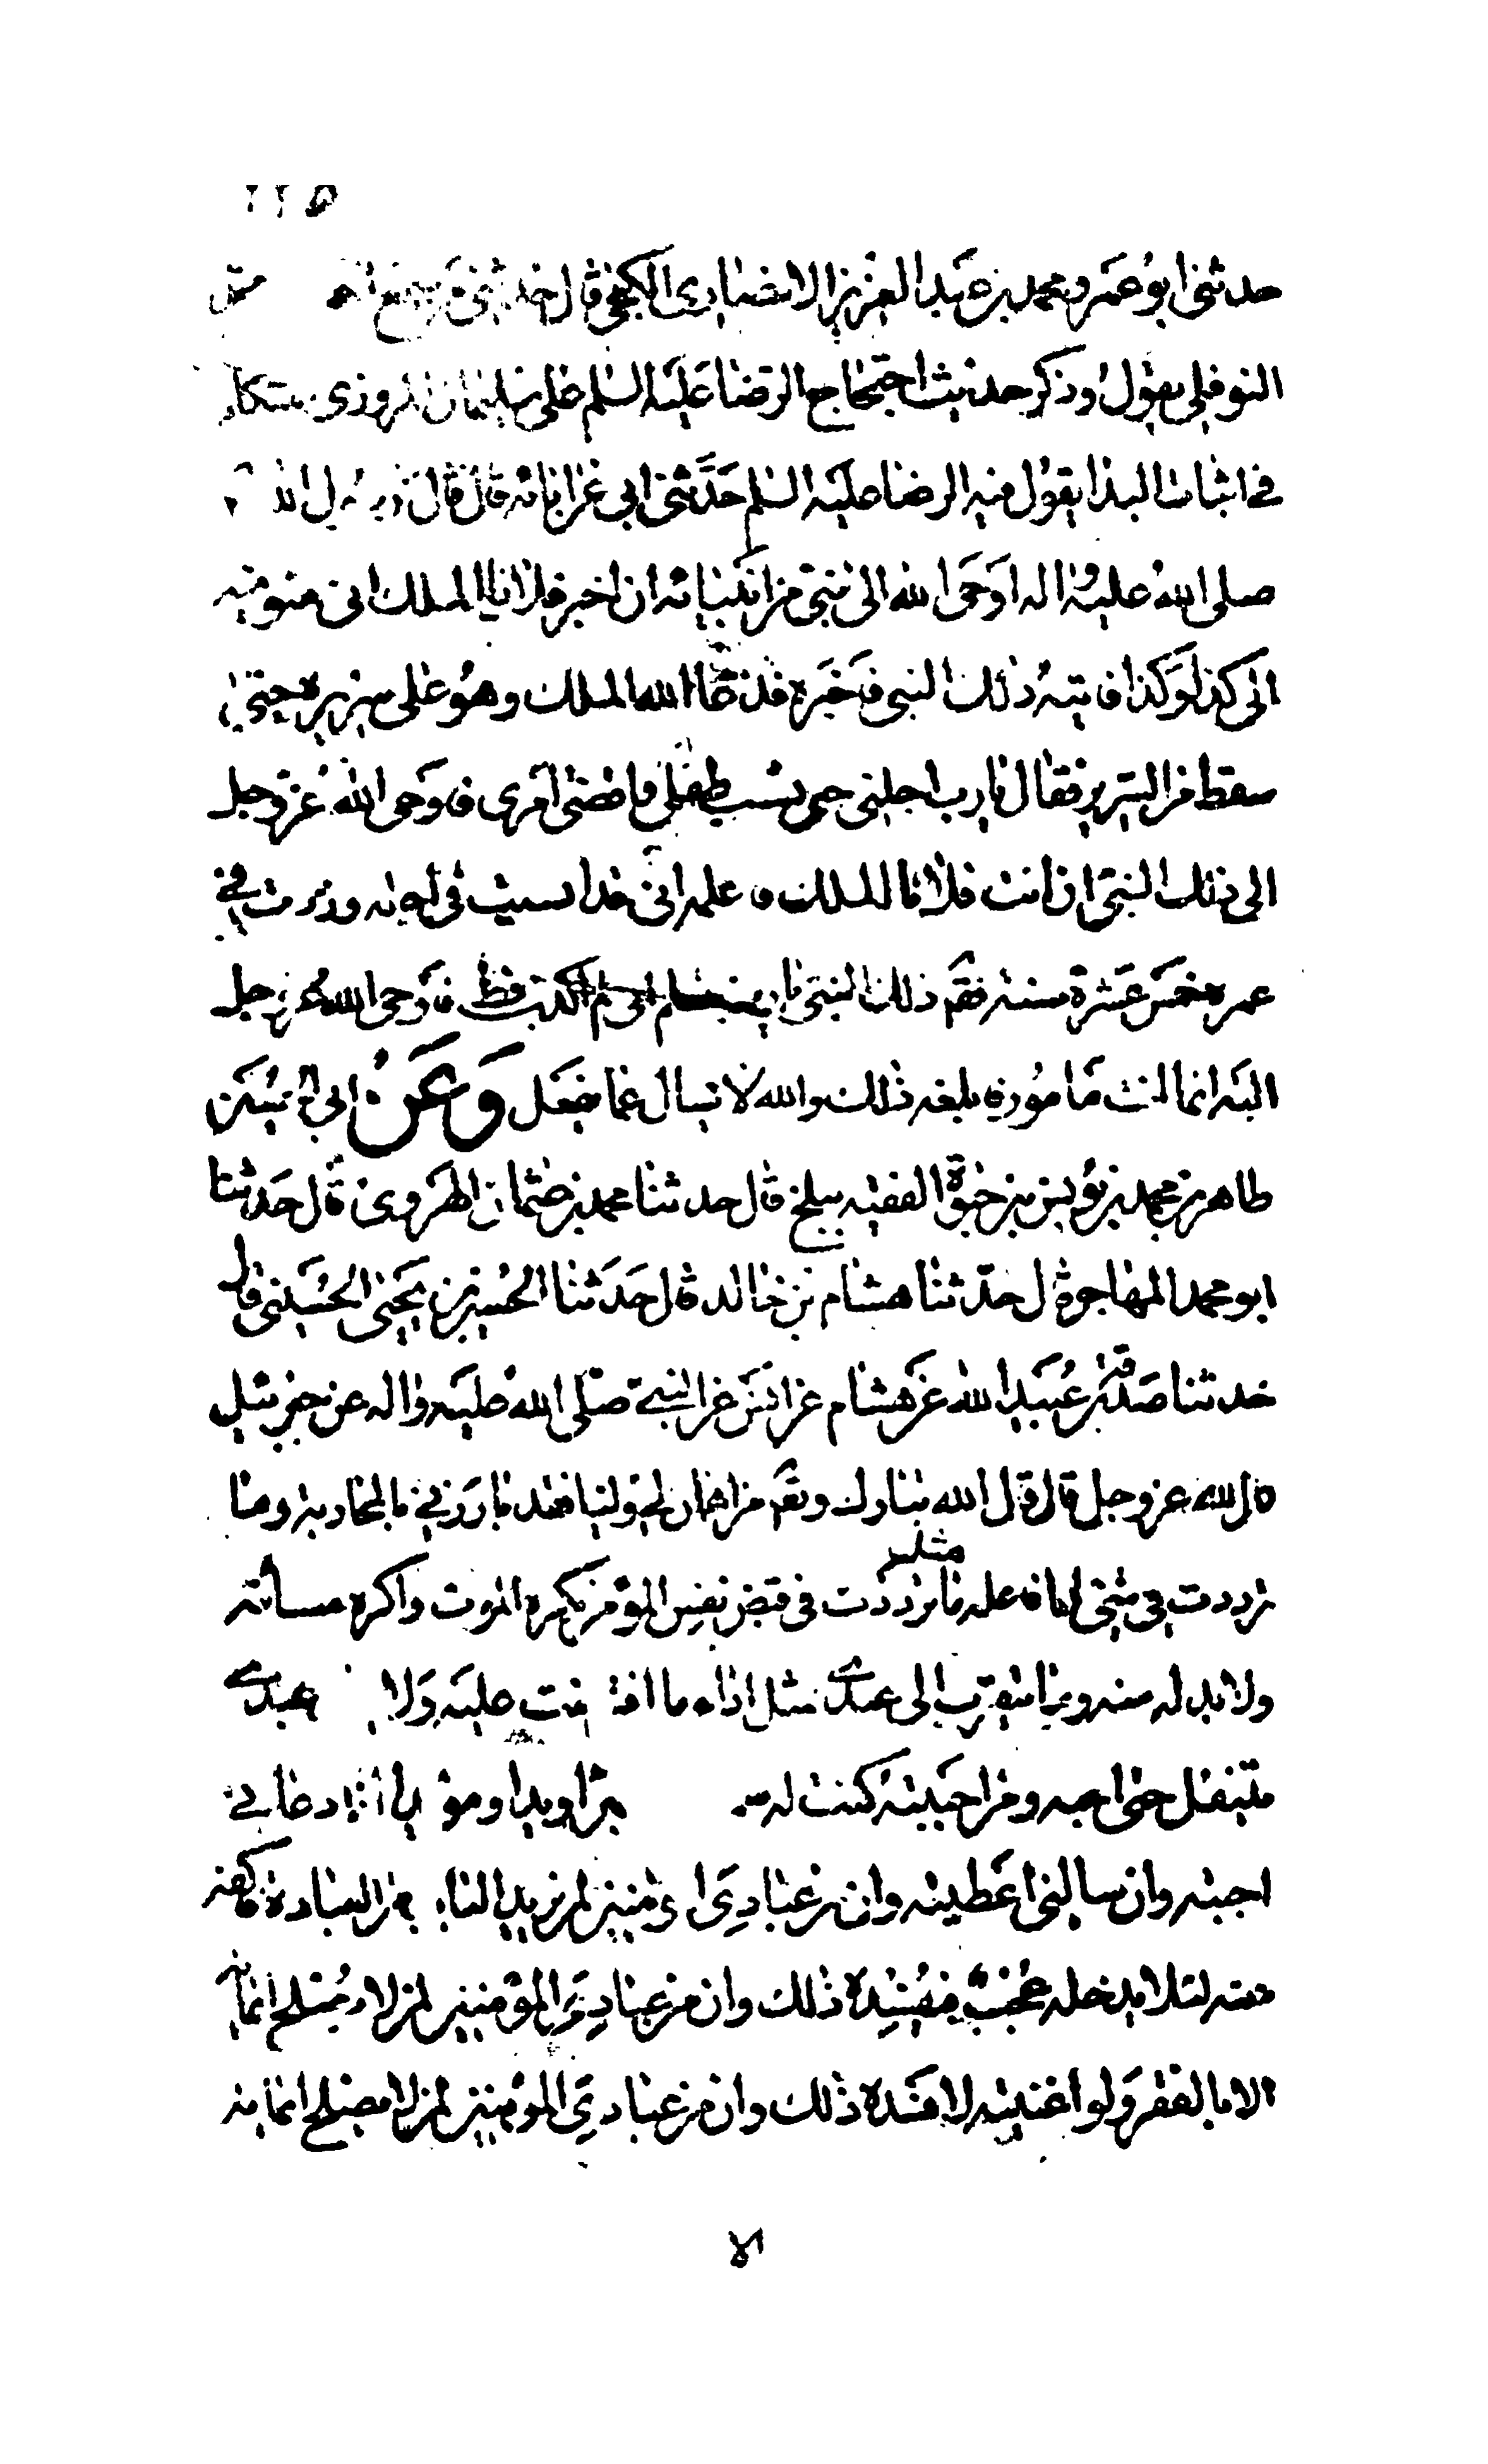 حدثني ابو عمرو محمد بن عبد العزيز الانصاري الكجي قال حدثني من سمع
النوفلي يقول وذكر حديث احتجاج الرضا عليه السلم على سليمان المروزي متكلم
في اثبات البدا يقول فيه الرضا عليه السلم حدثني ابي عن ابائه قال قال رسول الله
صلى الله عليه واله اوحى الله الى نبي من انبيائه ان اخبر فلانا الملك اني متوفيه
الى كذا وكذا فاتيه ذلك النبي فاخبره فدعا الله الملك وهو على سريره حتى
سقط من السرير فقال يارب اجلني حتى يشب طفلي واقضي امري فاوحى الله عز وجل
الى ذلك النبي ان ائت فلانا الملك فاعلمه اني قد انسيت في اجله وزدت في
عمره خمس عشرة سنة فقم ذلك النبي يارب انك لتعلم اني لم اكذب قط فاوحى الله عز وجل
اليه انما انت مامور فابلغه ذلك والله لا يسال عما يفعل وعن ابي الحسين
طاهر بن محمد بن يونس بن حيوة الفقيه ببلخ قال حدثنا محمد بن عثمان الهروي قال حدثنا
ابو محمد المهاجر قال حدثنا هشام بن خالد قال حدثنا الحسين بن يحيى الحسيني قال
حدثنا صدقة بن عبيد الله عن هشام عن انس عن النبي صلى الله عليه واله عن جبرئيل
عن الله عز وجل قال قال الله تبارك وتعم من اهان لي وليا فقد بارزني بالمحاربة وما
ترددت في شئ انا فاعله مثل ما ترددت في قبض نفس المؤمن يكره الموت واكره مساءته
ولا بد له منه وما يتقرب الى عبدي بمثل اداء ما افترضت عليه ولا عبدي
متنفل حتى احبه ومن احببته كنت له يدا ومويدا ان دعاني
اجبته وان سالني اعطيته وان من عبادي المؤمنين لمن يريد الباب من العبادة فاكفه
عنه لئلا يدخله عجب فيفسده ذلك وان من عبادي المؤمنين لمن لا يصلح ايمانه
الا بالفقر ولو اغنيته لافسده ذلك وان من عبادي المؤمنين لمن لا يصلح ايمانه
الا